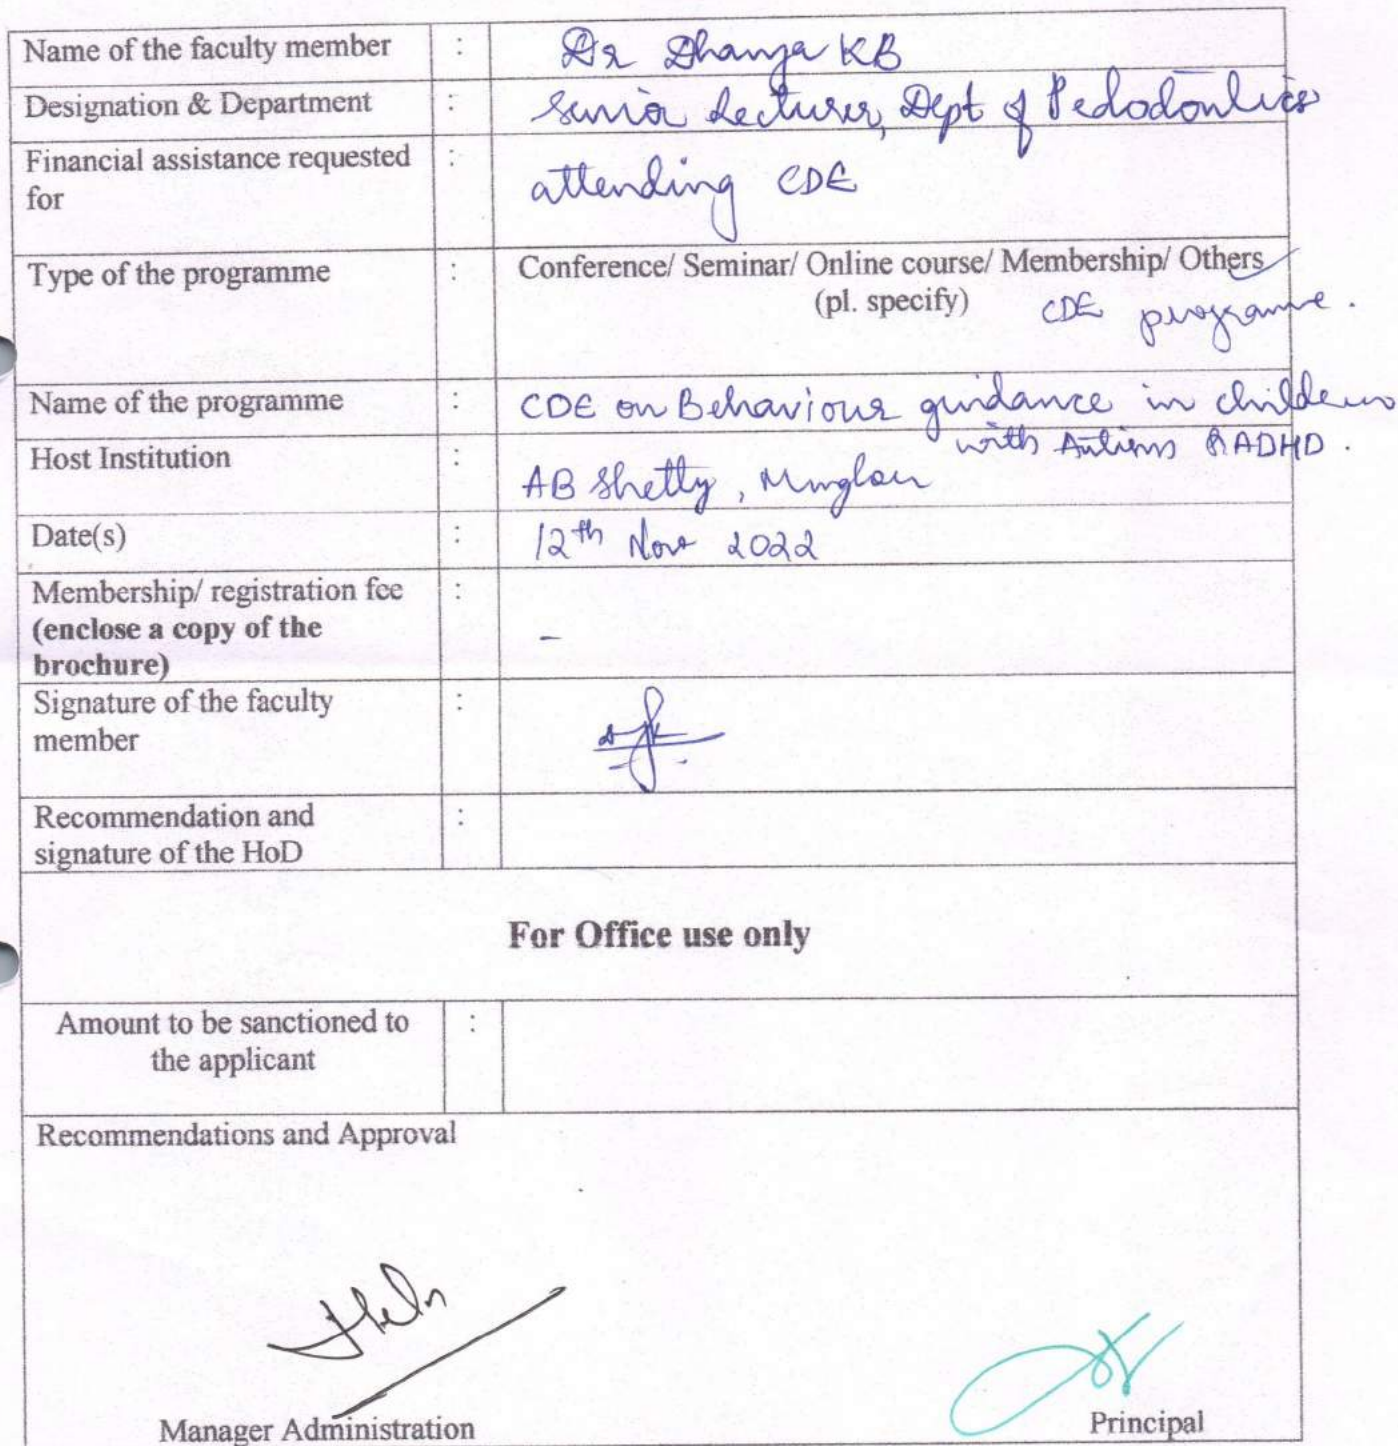 Name of the faculty member : Dr Dhanya KB
Designation & Department : Senior Lecturer, Dept of Pedodontics
Financial assistance requested : attending CDE
for
Type of the programme : Conference/ Seminar/ Online course/ Membership/ Others
(pl. specify) CDE programme.
Name of the programme : CDE on Behaviour guidance in children
with Autism & ADHD.
Host Institution : AB Shetty,
Date(s) : 12th Nov 2022
Membership/ registration fee : -
(enclose a copy of the
brochure)
Signature of the faculty :
member
Recommendation and :
signature of the HoD
For Office use only
Amount to be sanctioned to :
the applicant
Recommendations and Approval
Manager Administration Principal